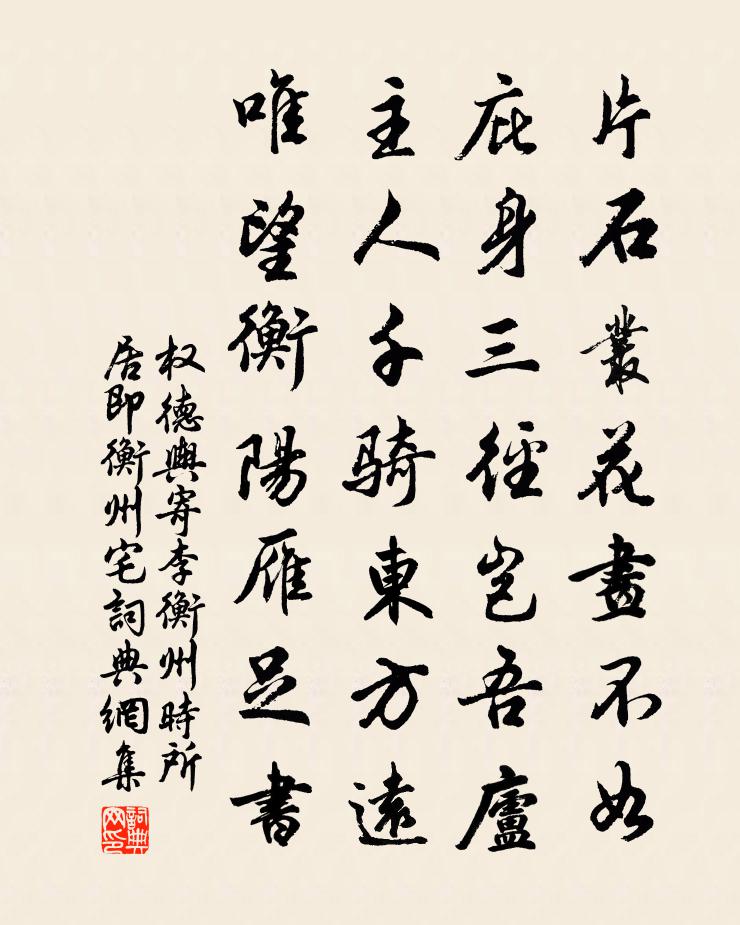 片石叢花畫不如
庇身三徑豈吾廬
主人千騎東方遠
唯望衡陽雁足書
权德輿寄李衡州時所
居即衡州宅詞典網集
詞典
网印